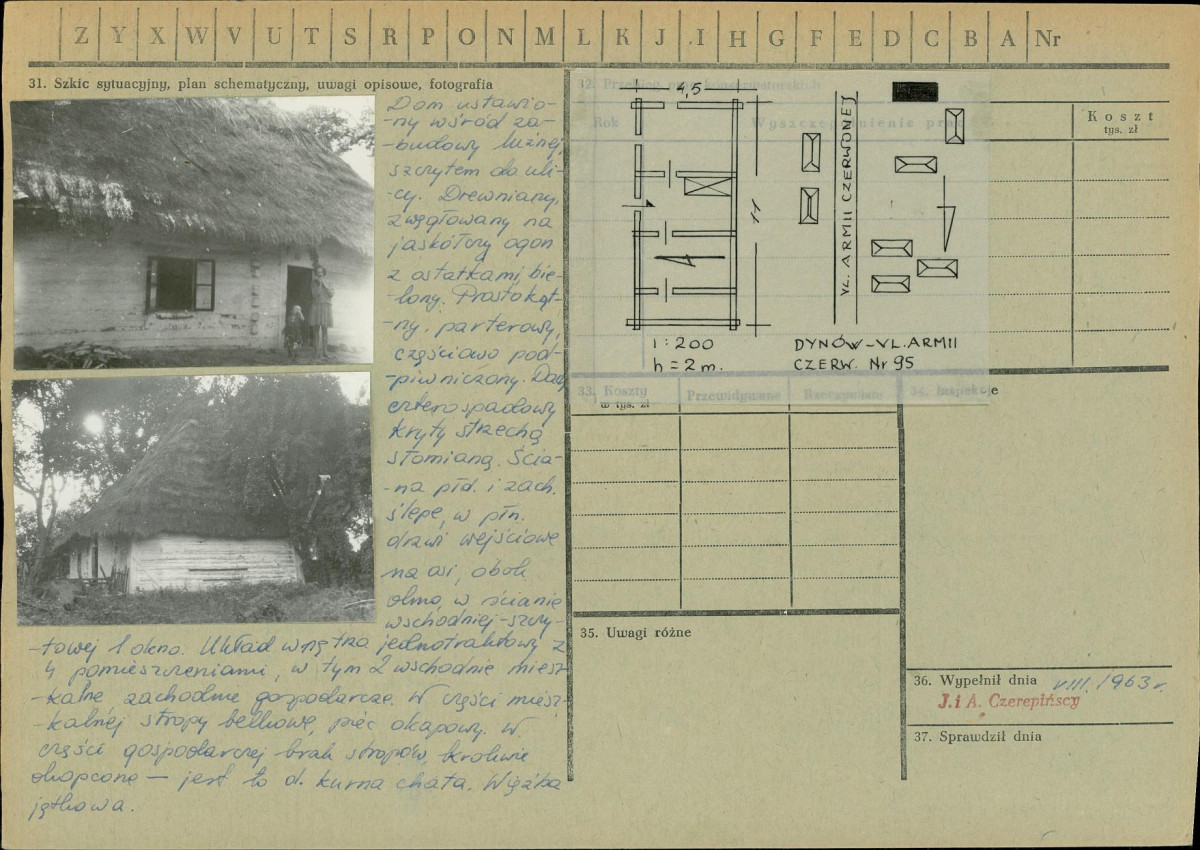 Z Y X W V U T S R P O N M L K J I H G F E D C B A Nr
31. Szkic sytuacyjny, plan schematyczny, uwagi opisowe, fotografia
Dom ustawio-
-ny wśród za-
-budowy luźnej,
szczytem do uli-
-cy. Drewniany,
zwęgłowany na
jaskółczy ogon
z ostatkami, bie-
-lony. Prostokąt-
-ny, parterowy,
częściowo pod-
-piwniczony. Dach
czterospadowy
kryty strzechą
słomianą. Ścia-
-na płd. i zach.
ślepe, w płn.
drzwi wejściowe
na osi, obok
okno, w ścianie
wschodniej-szczy-
-towej 1 okno. Układ wnętrza jednotraktowy z
4 pomieszczeniami, w tym 2 wschodnie miesz-
-kalne, zachodnie gospodarcze. W części miesz-
-kalnej stropy belkowe, piec okapowy. W
części gospodarczej brak stropów, krokwie
okopcone — jest to d. kurna chata. Więźba
jętkowa.
32. Przebieg prac konserwatorskich
Rok
Wyszczególnienie prac
Koszt
tys. zł
4,5
11
UL. ARMII CZERWONEJ
1:200
h = 2 m.
DYNÓW-UL. ARMII
CZERW. Nr 95
33. Koszty
w tys. zł
Przewidywane
Rzeczywiste
34. Inspekcje
35. Uwagi różne
36. Wypełnił dnia VIII. 1963 r.
J. i A. Czerepińscy
37. Sprawdził dnia